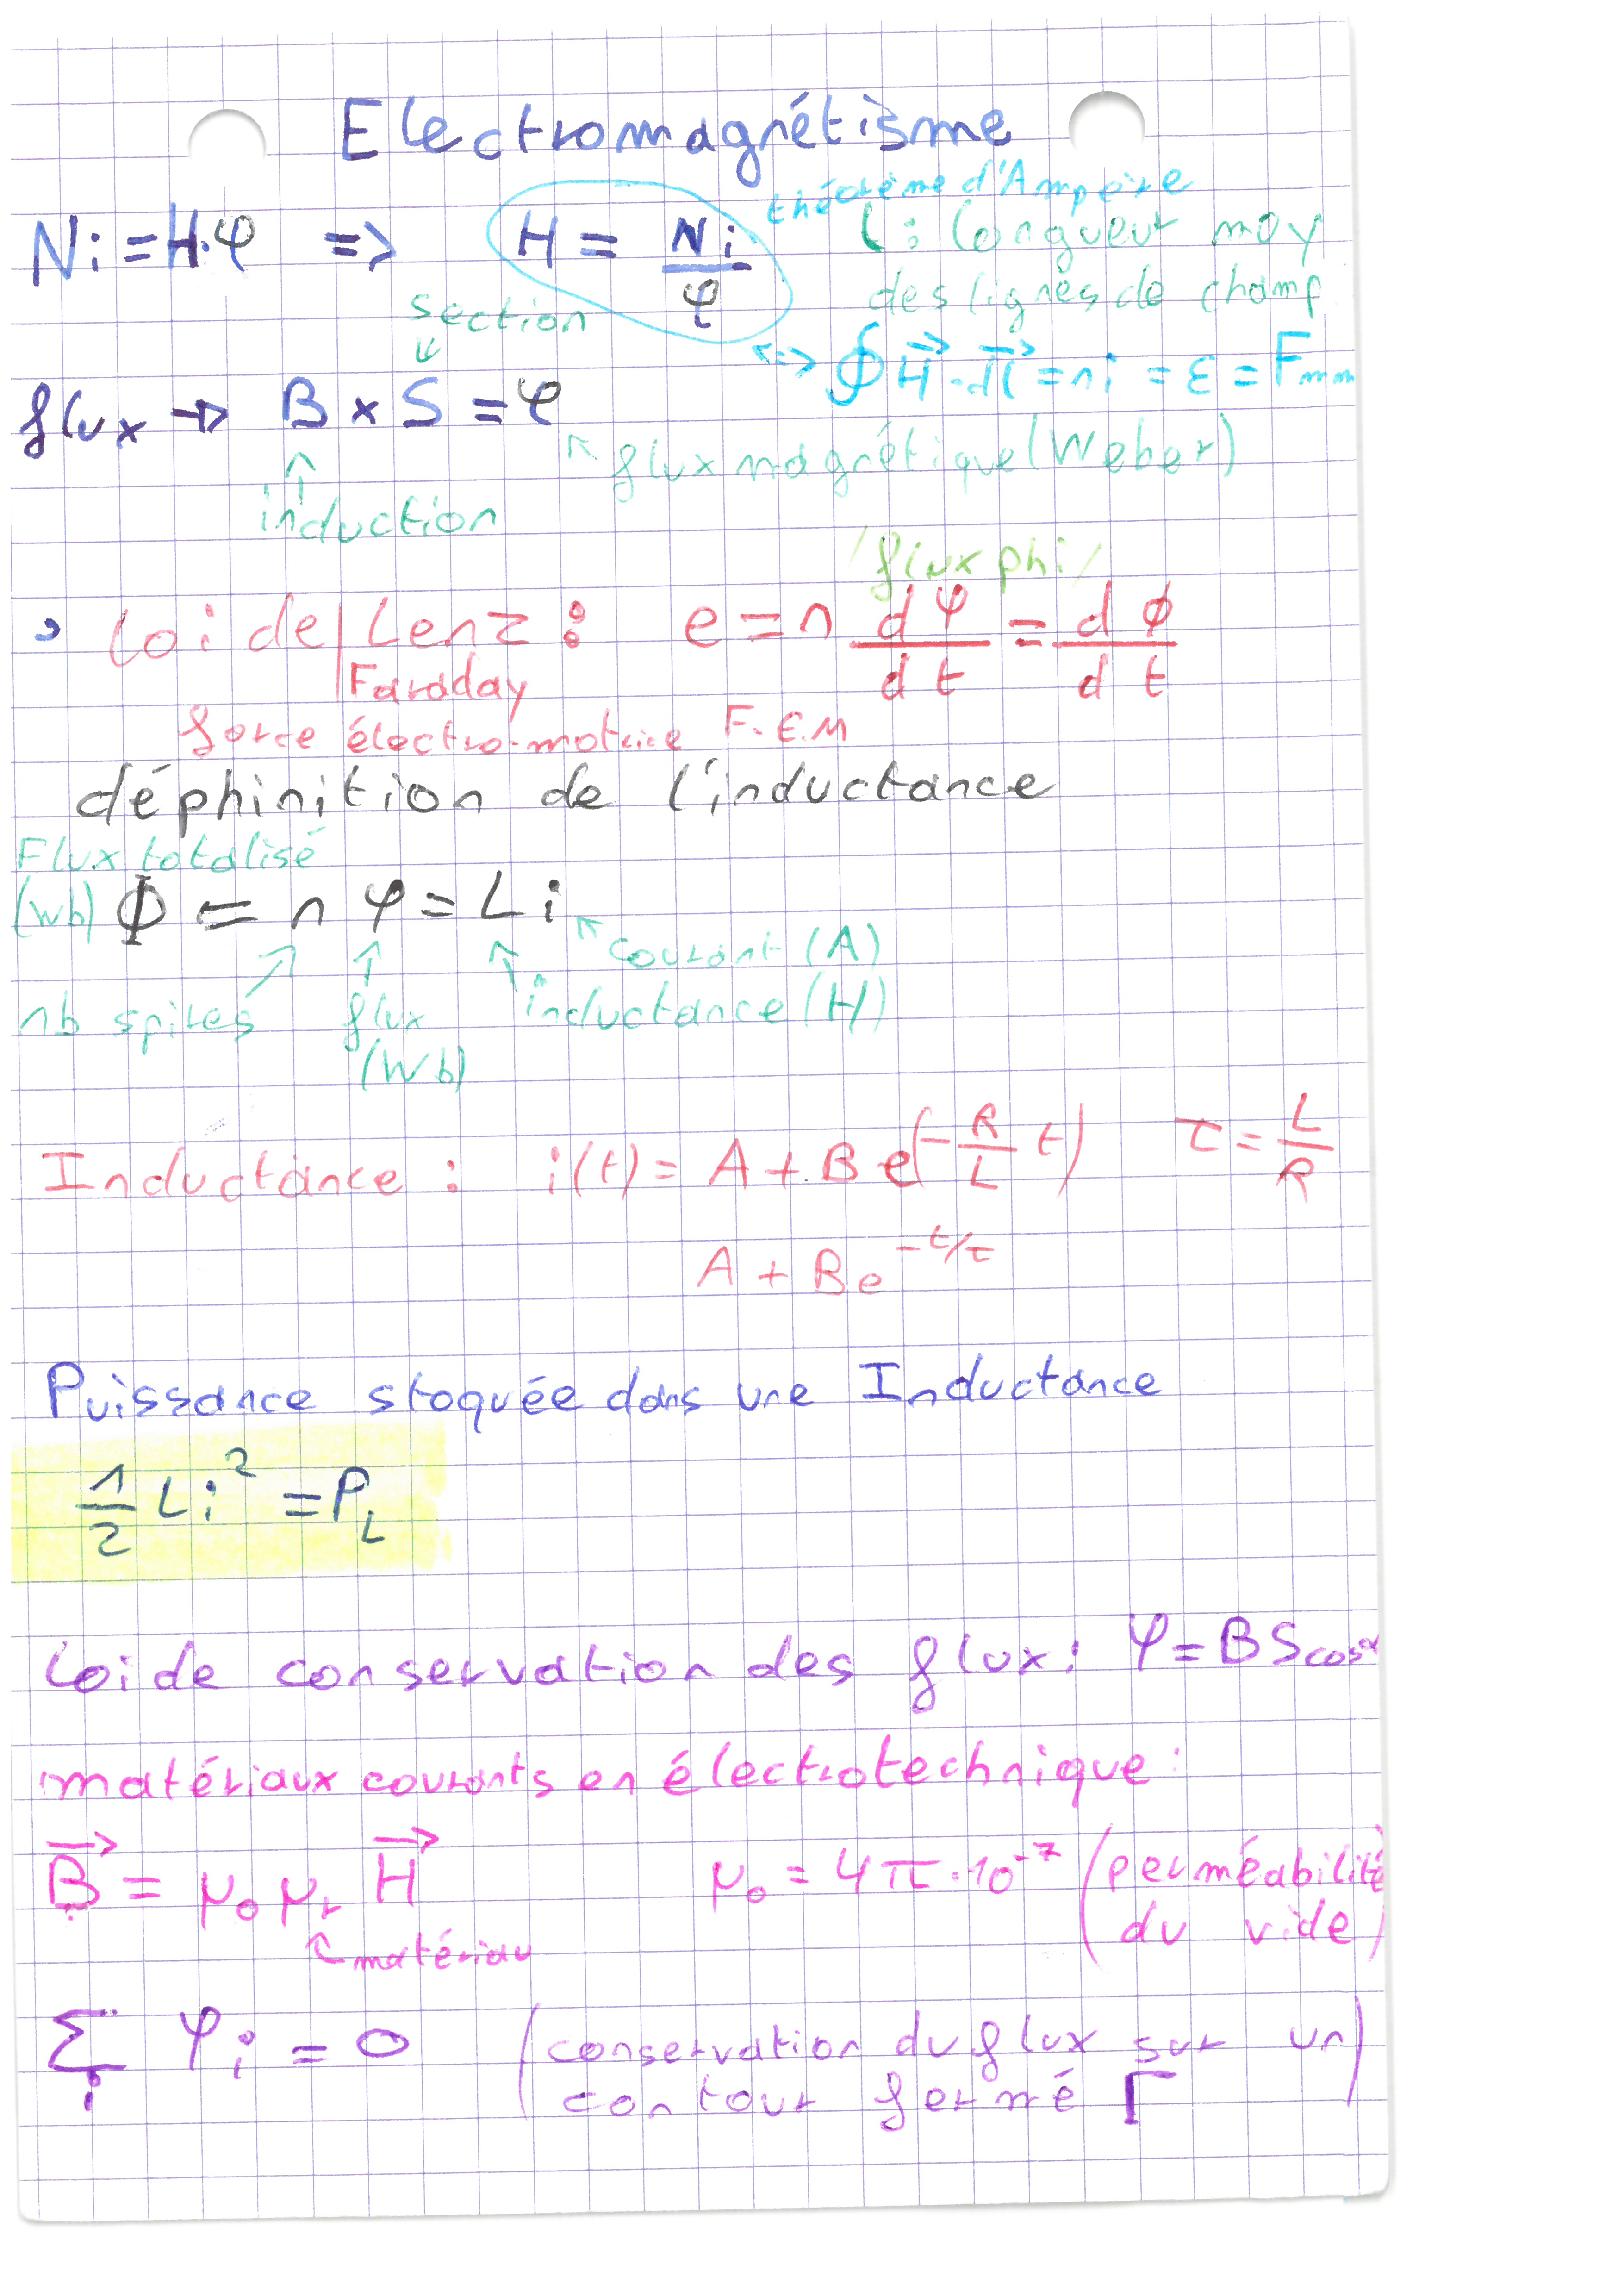 Electromagnétisme
théorème d'Ampère
Ni = H.φ => H = Ni/φ
l : longueur moy
des lignes de champ
section
<=> ∮ H⃗ . dl⃗ = ni = ε = Fmm
flux → B x S = φ
flux magnétique (Weber)
induction
/ flux phi /
Loi de Lenz : e = n dφ/dt = dϕ/dt
Faraday
force électro-motrice F.E.M
déphinition de l'inductance
Flux totalisé
(Wb) Φ = n φ = L i
courant (A)
nb spires flux inductance (H)
(Wb)
Inductance : i(t) = A + B e(-R/L t) τ = L/R
A + B e^-t/τ
Puissance stoquée dans une Inductance
1/2 Li² = P_L
Loi de conservation des flux : φ = B S cos α
matériaux courants en électrotechnique :
B⃗ = μ₀ μᵣ H⃗ μ₀ = 4π.10⁻⁷ (perméabilité
matériau du vide)
Σ_i φ_i = 0 (conservation du flux sur un
contour fermé Γ)